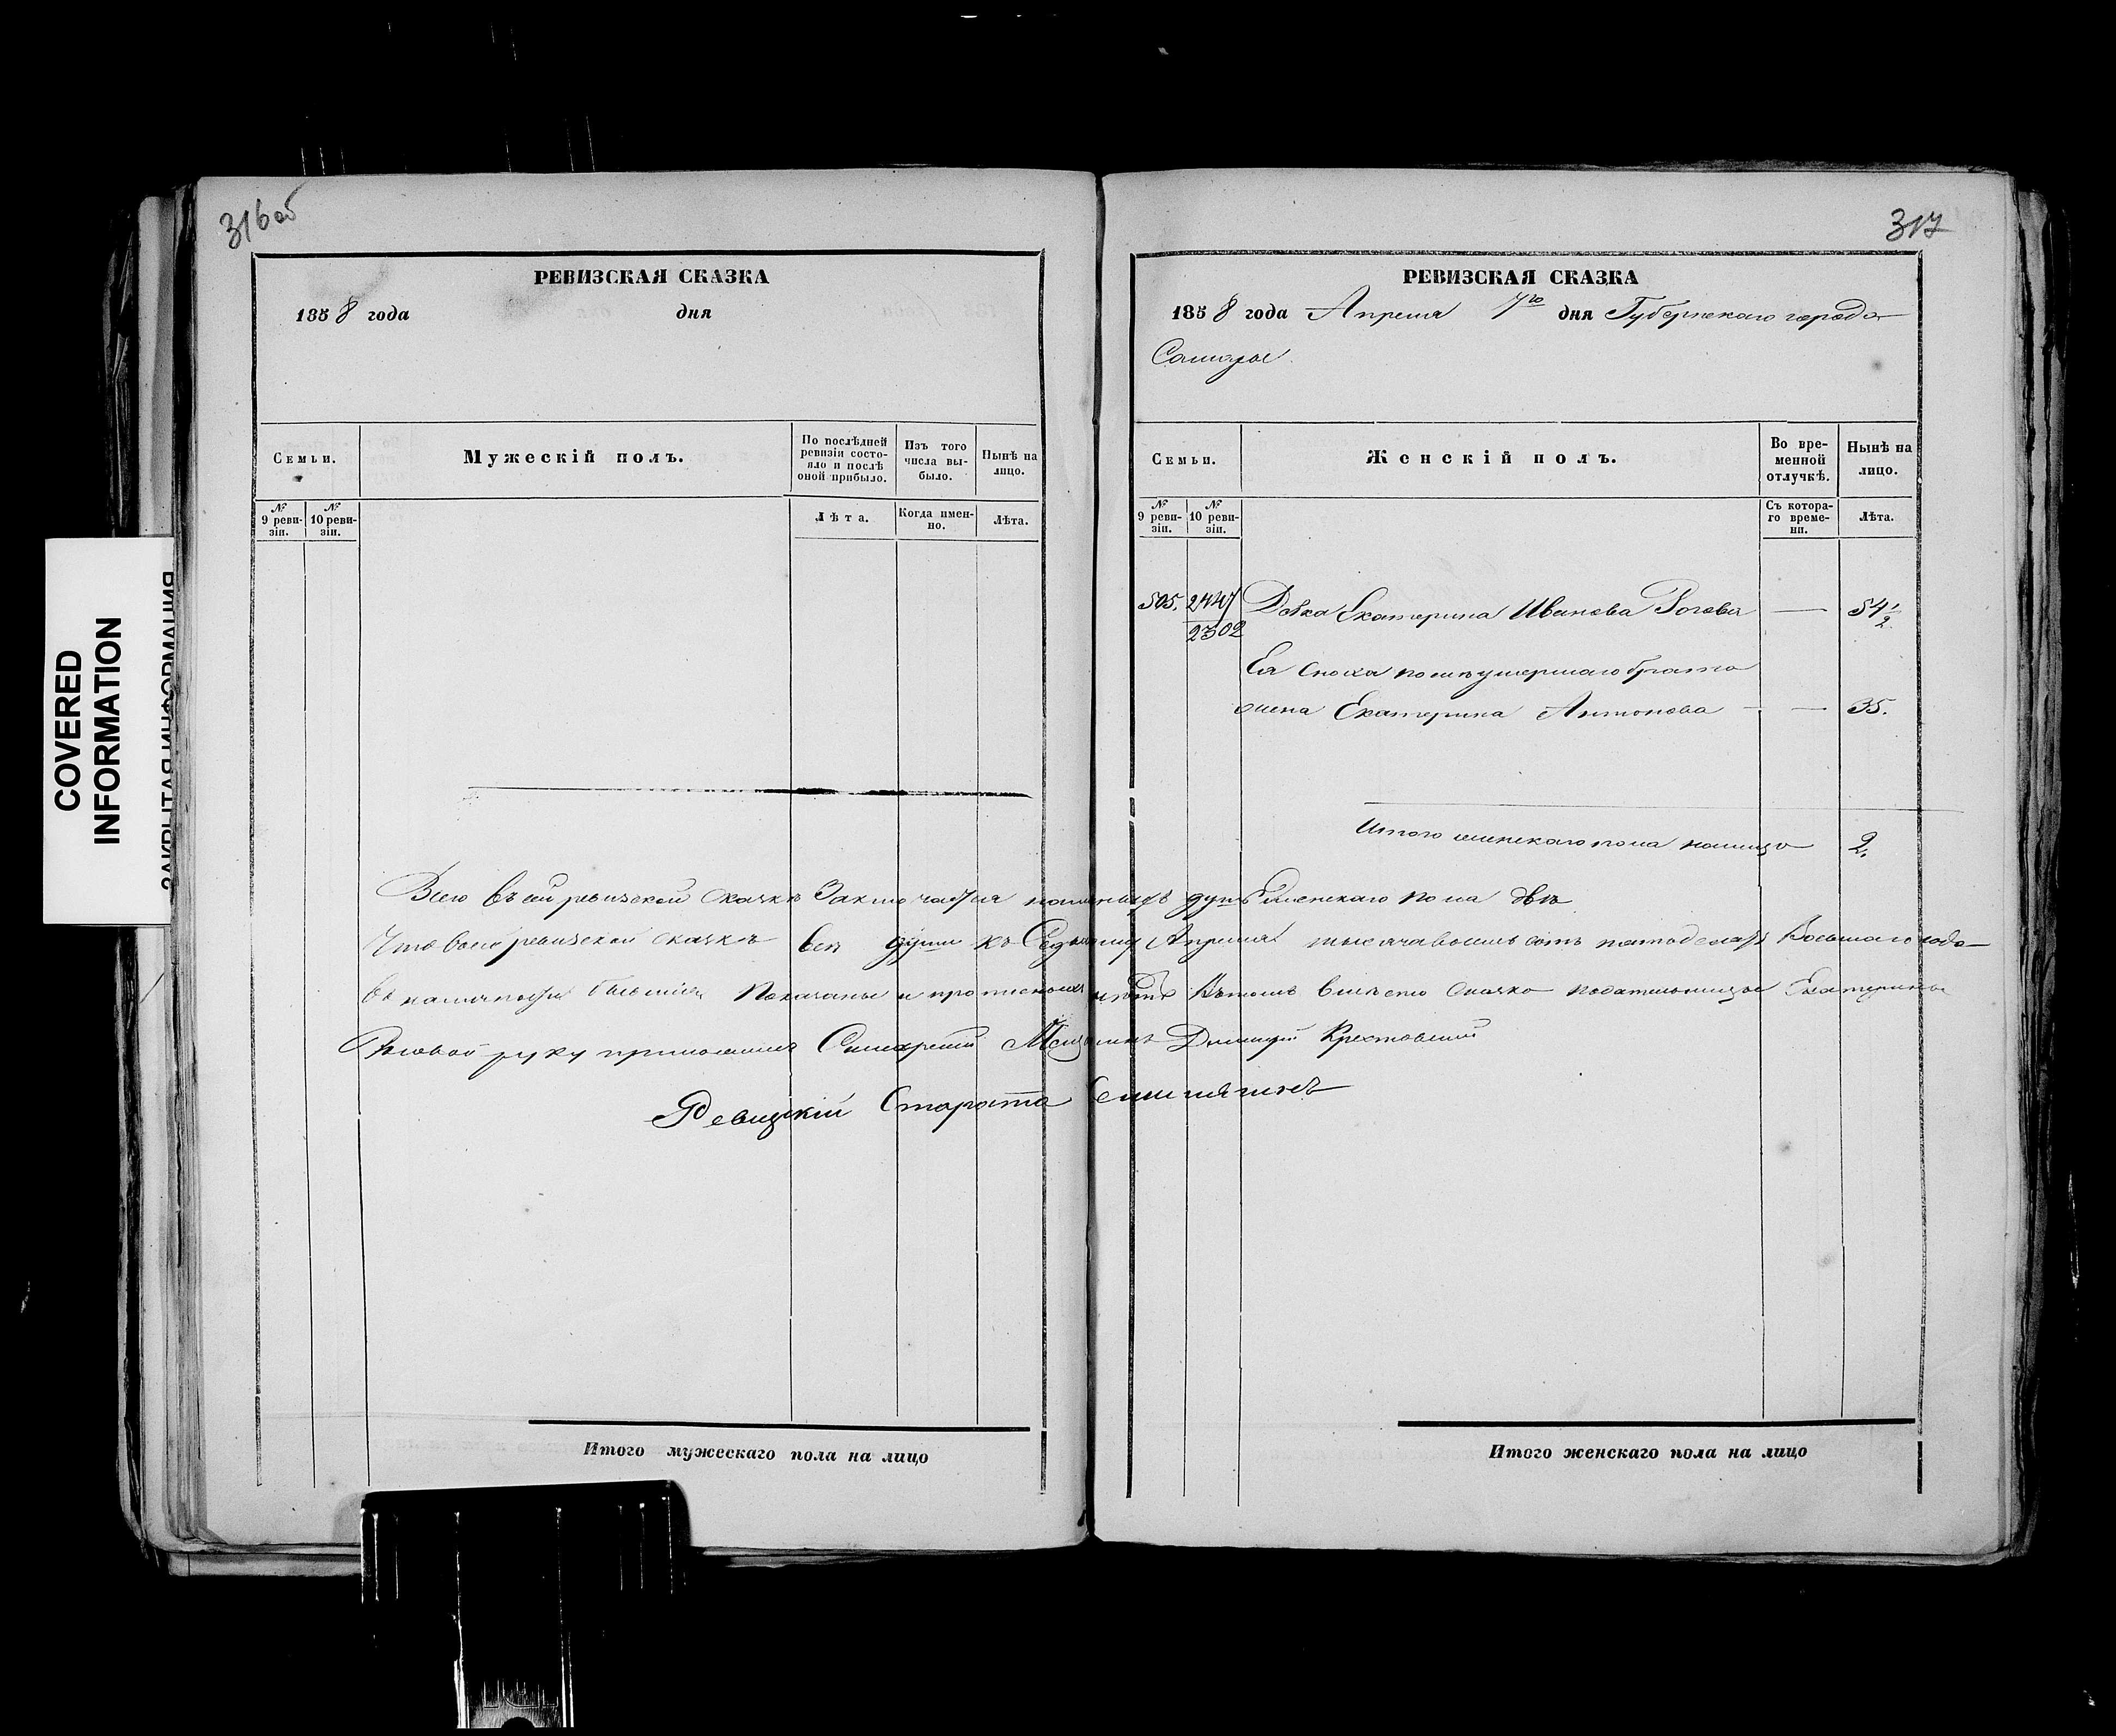 316об
РЕВИЗСКАЯ СКАЗКА
1858 года дня
Семьи.
Мужескій полъ.
По послѣдней ревизіи состояло и послѣ оной прибыло.
Изъ того числа выбыло.
Нынѣ на лицо.
№ 9 ревизіи.
№ 10 ревизіи.
Лѣта.
Когда именно.
Лѣта.
317
РЕВИЗСКАЯ СКАЗКА
1858 года Апреля 7го дня Губернскаго города
Самары
Семьи.
Женскій полъ.
Во временной отлучкѣ.
Нынѣ на лицо.
№ 9 ревизіи.
№ 10 ревизіи.
Съ котораго времени.
Лѣта.
505. 2447 Дѣвка Екатерина Иванова Рогова — 54 1/2
2302
Ея сноха помѣумершаго брата
жена Екатерина Антонова — 35.
Итого женскаго пола налицо 2.
Всего въ сей ревизской сказкѣ Заключается наличныхъ душъ женскаго пола двѣ
Что в сей ревизской сказкѣ всѣ души къ Седьмому Апреля тысяча восемь сотъ пятьдесятъ Восьмаго года
въ наличности бывшия Показаны и прописныхъ нѣтъ Въ томъ вместо Сказко подательницы Екатерины
Роговой руку приложилъ Самарский Мещанинъ Дмитрий Крестовский
Ревизкій Староста
Итого мужескаго пола на лицо
Итого женскаго пола на лицо
COVERED
INFORMATION